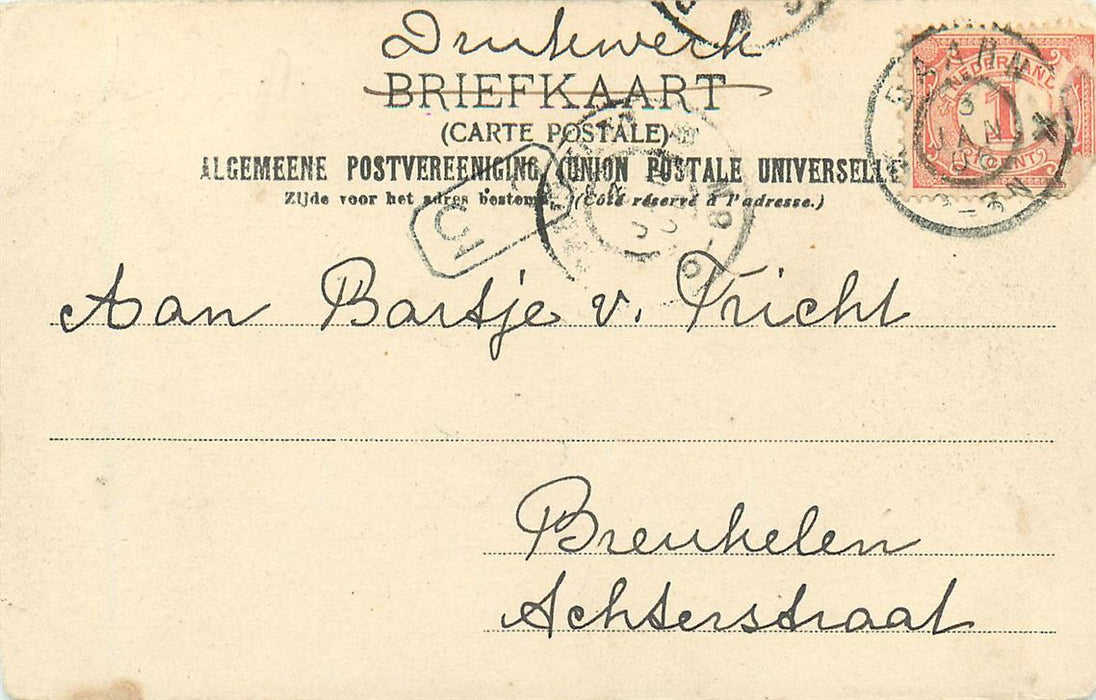 Drukwerk
BRIEFKAART
(CARTE POSTALE)
ALGEMEENE POSTVEREENIGING (UNION POSTALE UNIVERSELLE
Zijde voor het adres bestemd. (Côté réservé à l'adresse.)
BAARN
3
JAN
NEDERLAND
1
CENT
3
Aan Bartje v. Tricht
Breukelen
Achterstraat